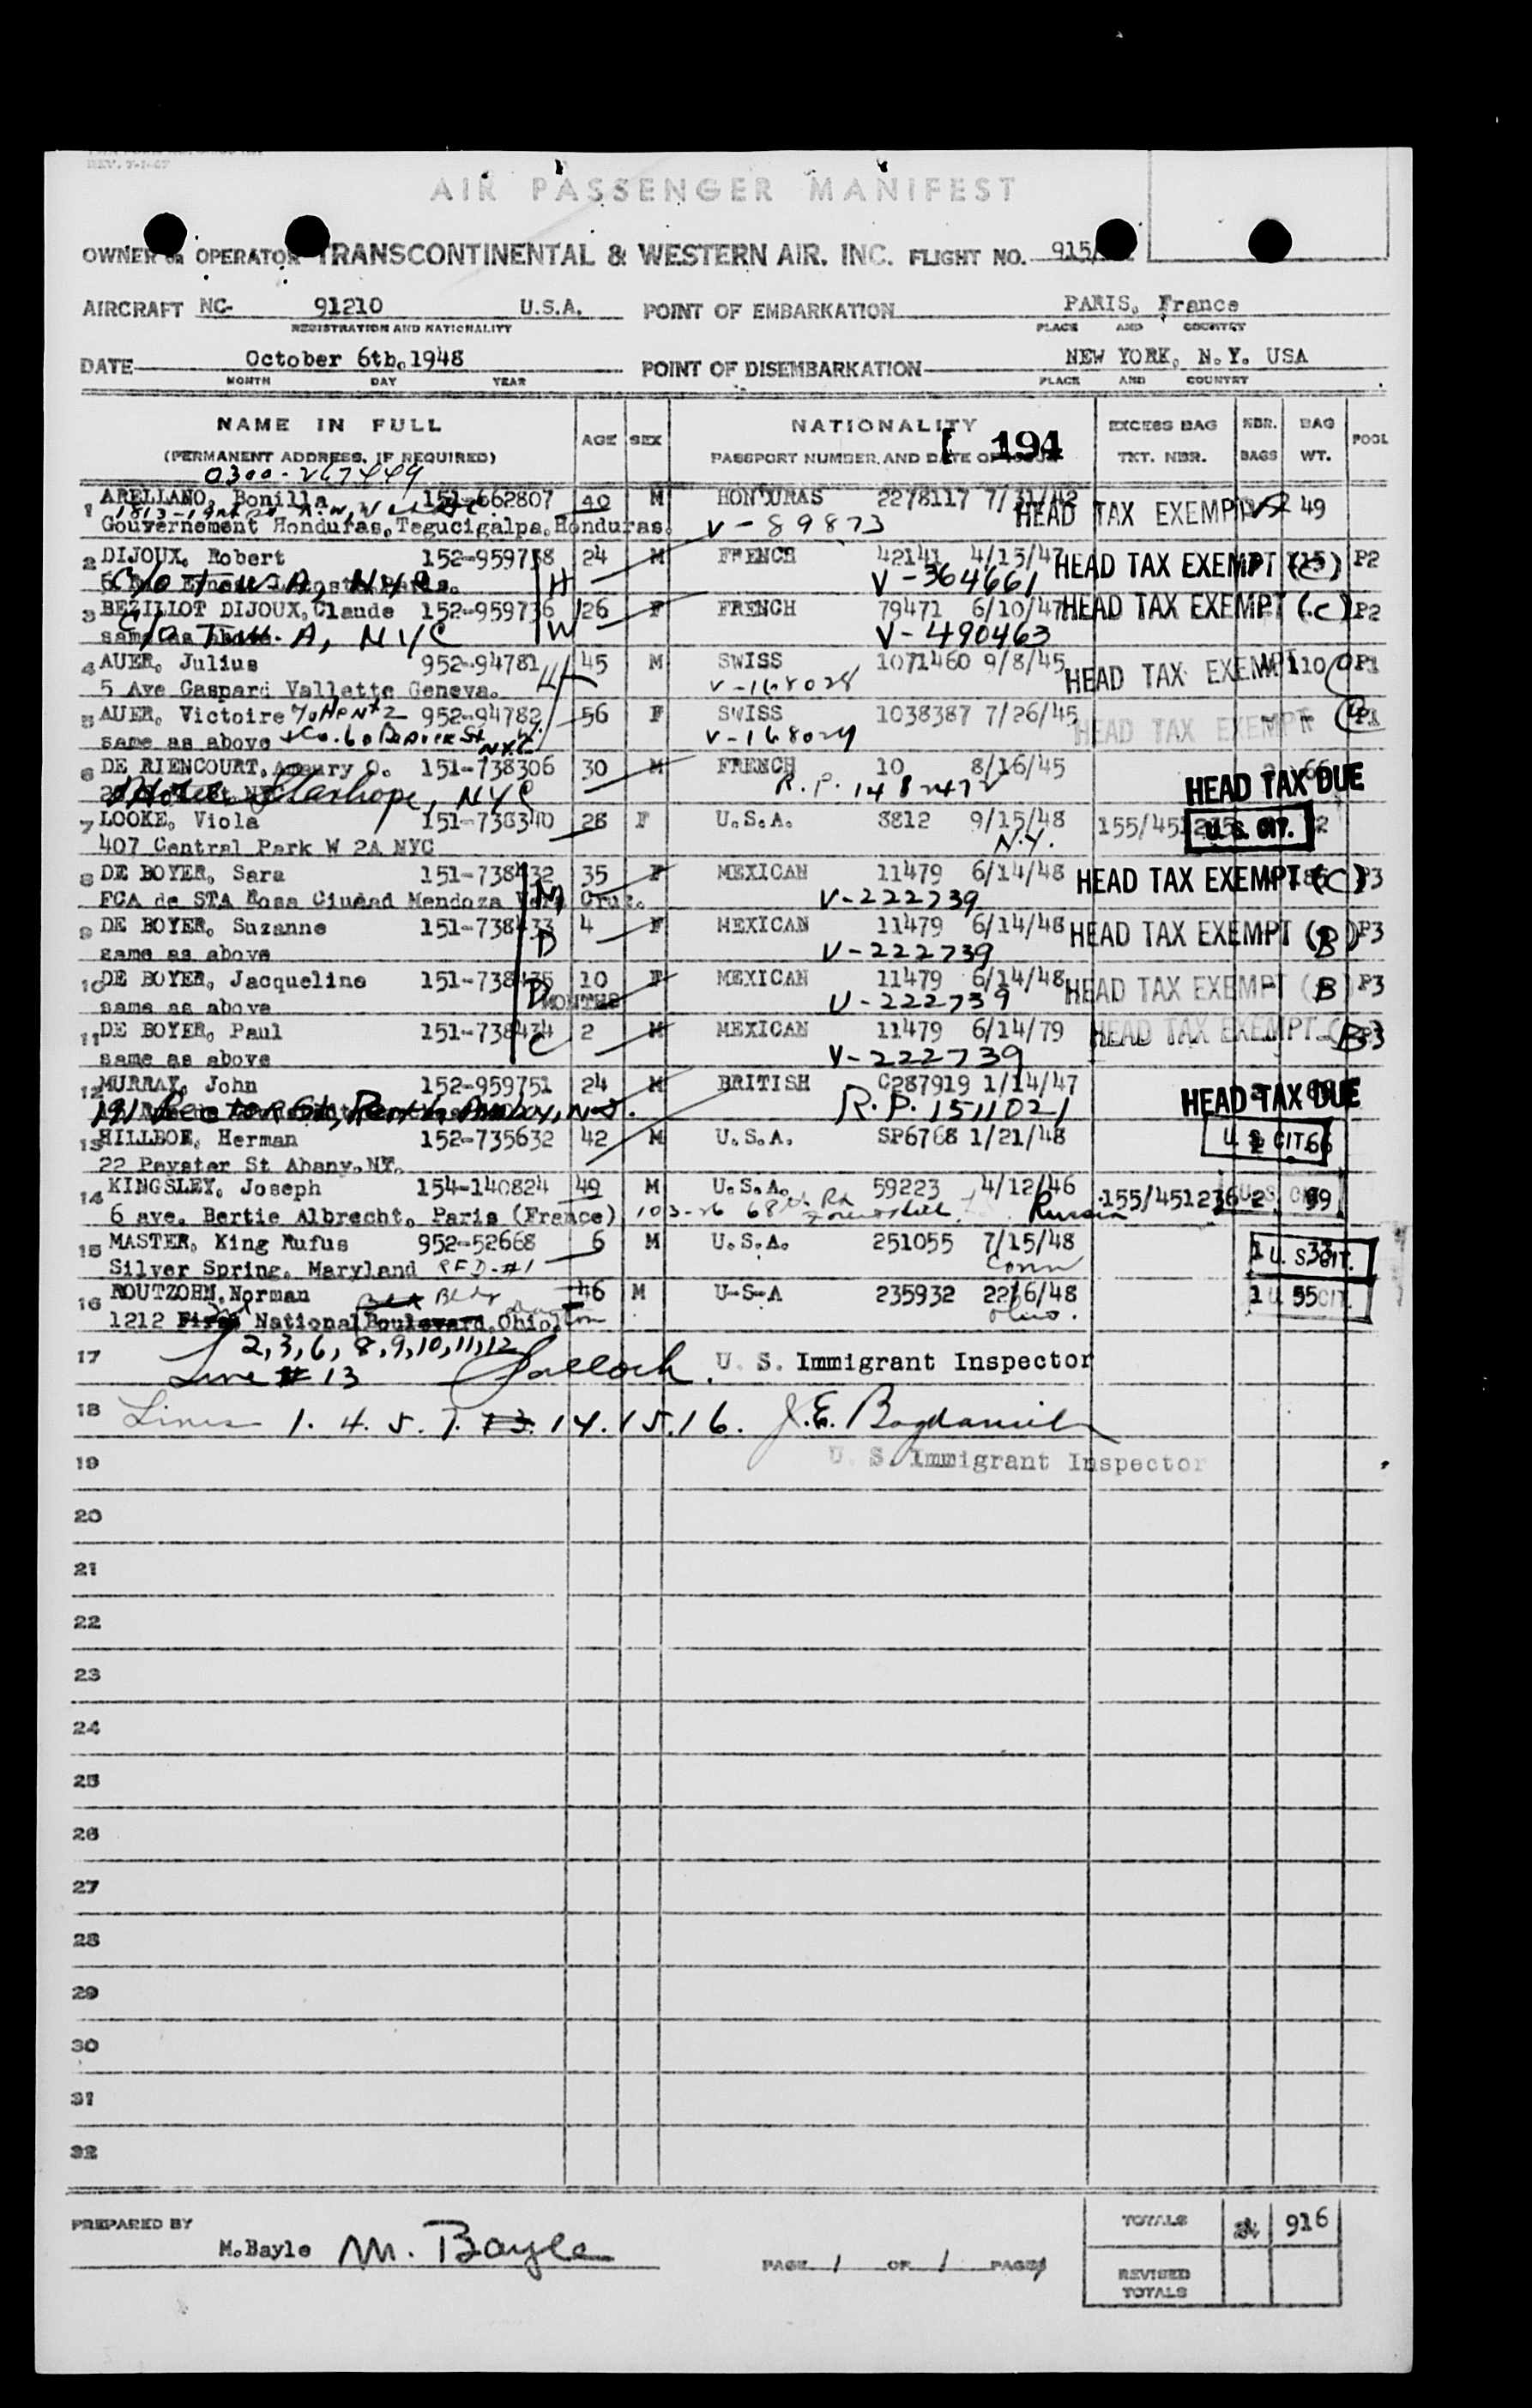 REV. 7-1-47
AIR PASSENGER MANIFEST
OWNER OR OPERATOR TRANSCONTINENTAL & WESTERN AIR. INC. FLIGHT NO. 915/
AIRCRAFT NC- 91210 U.S.A. POINT OF EMBARKATION PARIS, France
REGISTRATION AND NATIONALITY PLACE AND COUNTRY
DATE October 6th.1948 POINT OF DISEMBARKATION NEW YORK, N.Y. USA
MONTH DAY YEAR PLACE AND COUNTRY
NAME IN FULL AGE SEX NATIONALITY 194 EXCESS BAG NBR. BAG POOL
(PERMANENT ADDRESS, IF REQUIRED) PASSPORT NUMBER, AND DATE OF TKT. NBR. BAGS WT.
0300-267449
1 ARELLANO, Bonilla 151-662807 40 M HONDURAS 2278117 7/31/42 HEAD TAX EXEMPT 49
Gouvernement Honduras, Tegucigalpa, Honduras. V-89873
2 DIJOUX, Robert 152-959738 24 M FRENCH 42141 4/15/47 HEAD TAX EXEMPT (C) P2
C/O T.W.A, NYC. H V-364661
3 BEZILLOT DIJOUX, Claude 152-959736 26 F FRENCH 79471 6/10/47 HEAD TAX EXEMPT (C) P2
same as above C/O T.W.A, NYC W V-490463
4 AUER, Julius 952-94781 45 M SWISS 1071460 9/8/45 HEAD TAX EXEMPT 110 P1
5 Ave Gaspard Vallette Geneva. H V-168028
5 AUER, Victoire 952-94782 56 F SWISS 1038387 7/26/45 HEAD TAX EXEMPT P1
same as above NYC W V-168029
6 DE RIENCOURT, Amaury O. 151-738306 30 M FRENCH 10 8/16/45 66 HEAD TAX DUE
Hotel Stanhope, NYC R.P. 1482472
7 LOOKE, Viola 151-738340 28 F U.S.A. 8812 9/15/48 155/451235 U.S. CIT. 2
407 Central Park W 2A NYC N.Y.
8 DE BOYER, Sara 151-738432 35 F MEXICAN 11479 6/14/48 HEAD TAX EXEMPT (C) P3
FCA de STA Rosa Ciudad Mendoza Vera Cruz. M V-222739
9 DE BOYER, Suzanne 151-738433 4 F MEXICAN 11479 6/14/48 HEAD TAX EXEMPT (B) P3
same as above D V-222739
10 DE BOYER, Jacqueline 151-738435 10 F MEXICAN 11479 6/14/48 HEAD TAX EXEMPT (B) P3
same as above D MONTHS V-222739
11 DE BOYER, Paul 151-738434 2 M MEXICAN 11479 6/14/79 HEAD TAX EXEMPT (B) P3
same as above C V-222739
12 MURRAY, John 152-959751 24 M BRITISH C287919 1/14/47 HEAD TAX DUE
191 Rector St, Perth Amboy, N.J. R.P. 1511021
13 HILLBOE, Herman 152-735632 42 M U.S.A. SP6768 1/21/48 U.S. CIT. 66
22 Peyster St Abany, NY.
14 KINGSLEY, Joseph 154-140824 49 M U.S.A. 59223 4/12/46 155/451236 2 U.S. CIT. 99
6 ave. Bertie Albrecht, Paris (France) 103-26 68th Rd Forest Hill. Russia
15 MASTER, King Rufus 952-52668 6 M U.S.A. 251055 7/15/48 1 U.S. CIT. 33
Silver Spring, Maryland RFD-#1 Conn
16 ROUTZOHN, Norman Bldg 46 M U-S-A 235932 2216/48 1 U.S. CIT. 55
1212 First 3rd National Boulevard, Ohio, Dayton Ohio.
17 2,3,6,8,9,10,11,12
Line # 13 U. S. Immigrant Inspector
18 Lines 1. 4. 5. 7. 13. 14. 15. 16. J.E.
19 U. S. Immigrant Inspector
20
21
22
23
24
25
26
27
28
29
30
31
32
PREPARED BY TOTALS 24 916
M.Bayle M. Bayle PAGE 1 OF 1 PAGES
REVISED
TOTALS